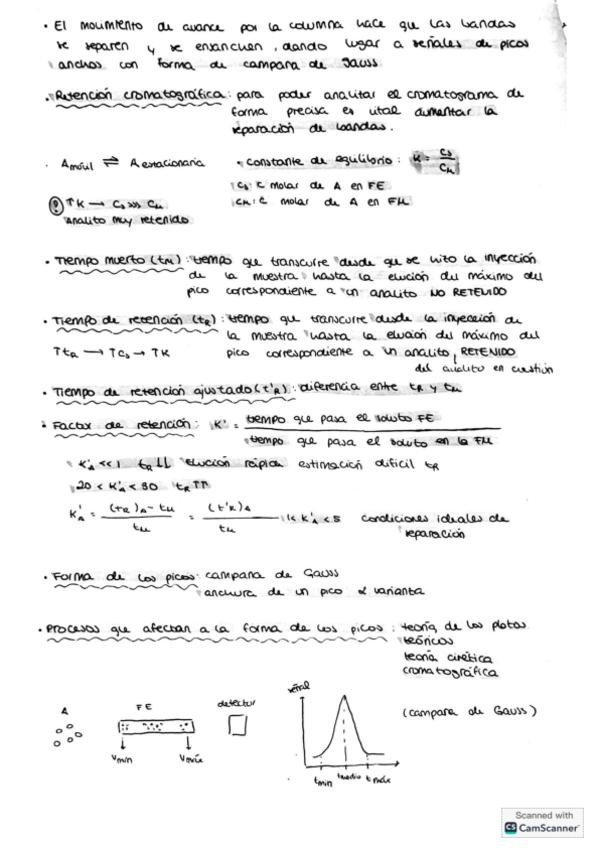 · El movimiento de avance por la columna hace que las bandas
se separen y se ensanchen, dando lugar a señales de picos
anchos con forma de campana de Gauss
· Retención cromatográfica: para poder analitar el cromatograma de
forma precisa es vital aumentar la
separación de bandas.
· A móvil ⇌ A estacionaria · constante de equilibrio: K = Cs / CM
Cs: C molar de A en FE
CM: C molar de A en FM
! ↑K → Cs >>> CM
Analito muy retenido
· Tiempo muerto (tM): tiempo que transcurre desde que se hizo la inyección
de la muestra hasta la elución del máximo del
pico correspondiente a un analito NO RETENIDO
· Tiempo de retención (tR): tiempo que transcurre desde la inyección de
la muestra hasta la elución del máximo del
↑tR → ↑Cs → ↑K pico correspondiente a un analito, RETENIDO
del analito en cuestión
· Tiempo de retención ajustado (t'R): diferencia entre tR y tM
· Factor de retención: K' = tiempo que pasa el soluto FE / tiempo que pasa el soluto en la FM
K'A << 1 tR ↓↓ elución rápida estimación dificil tR
20 < K'A < 30 tR ↑↑
K'A = (tR)A - tM / tM = (t'R)A / tM 1 < K'A < 5 condiciones ideales de
separación
· Forma de los picos: campana de Gauss
anchura de un pico α varianza
· Procesos que afectan a la forma de los picos: teoría de los platos
teóricos
teoría cinética
cromatográfica
A FE detector señal
(campana de Gauss)
Vmin Vmáx
tmin tmedio tmáx
Scanned with
CS CamScanner